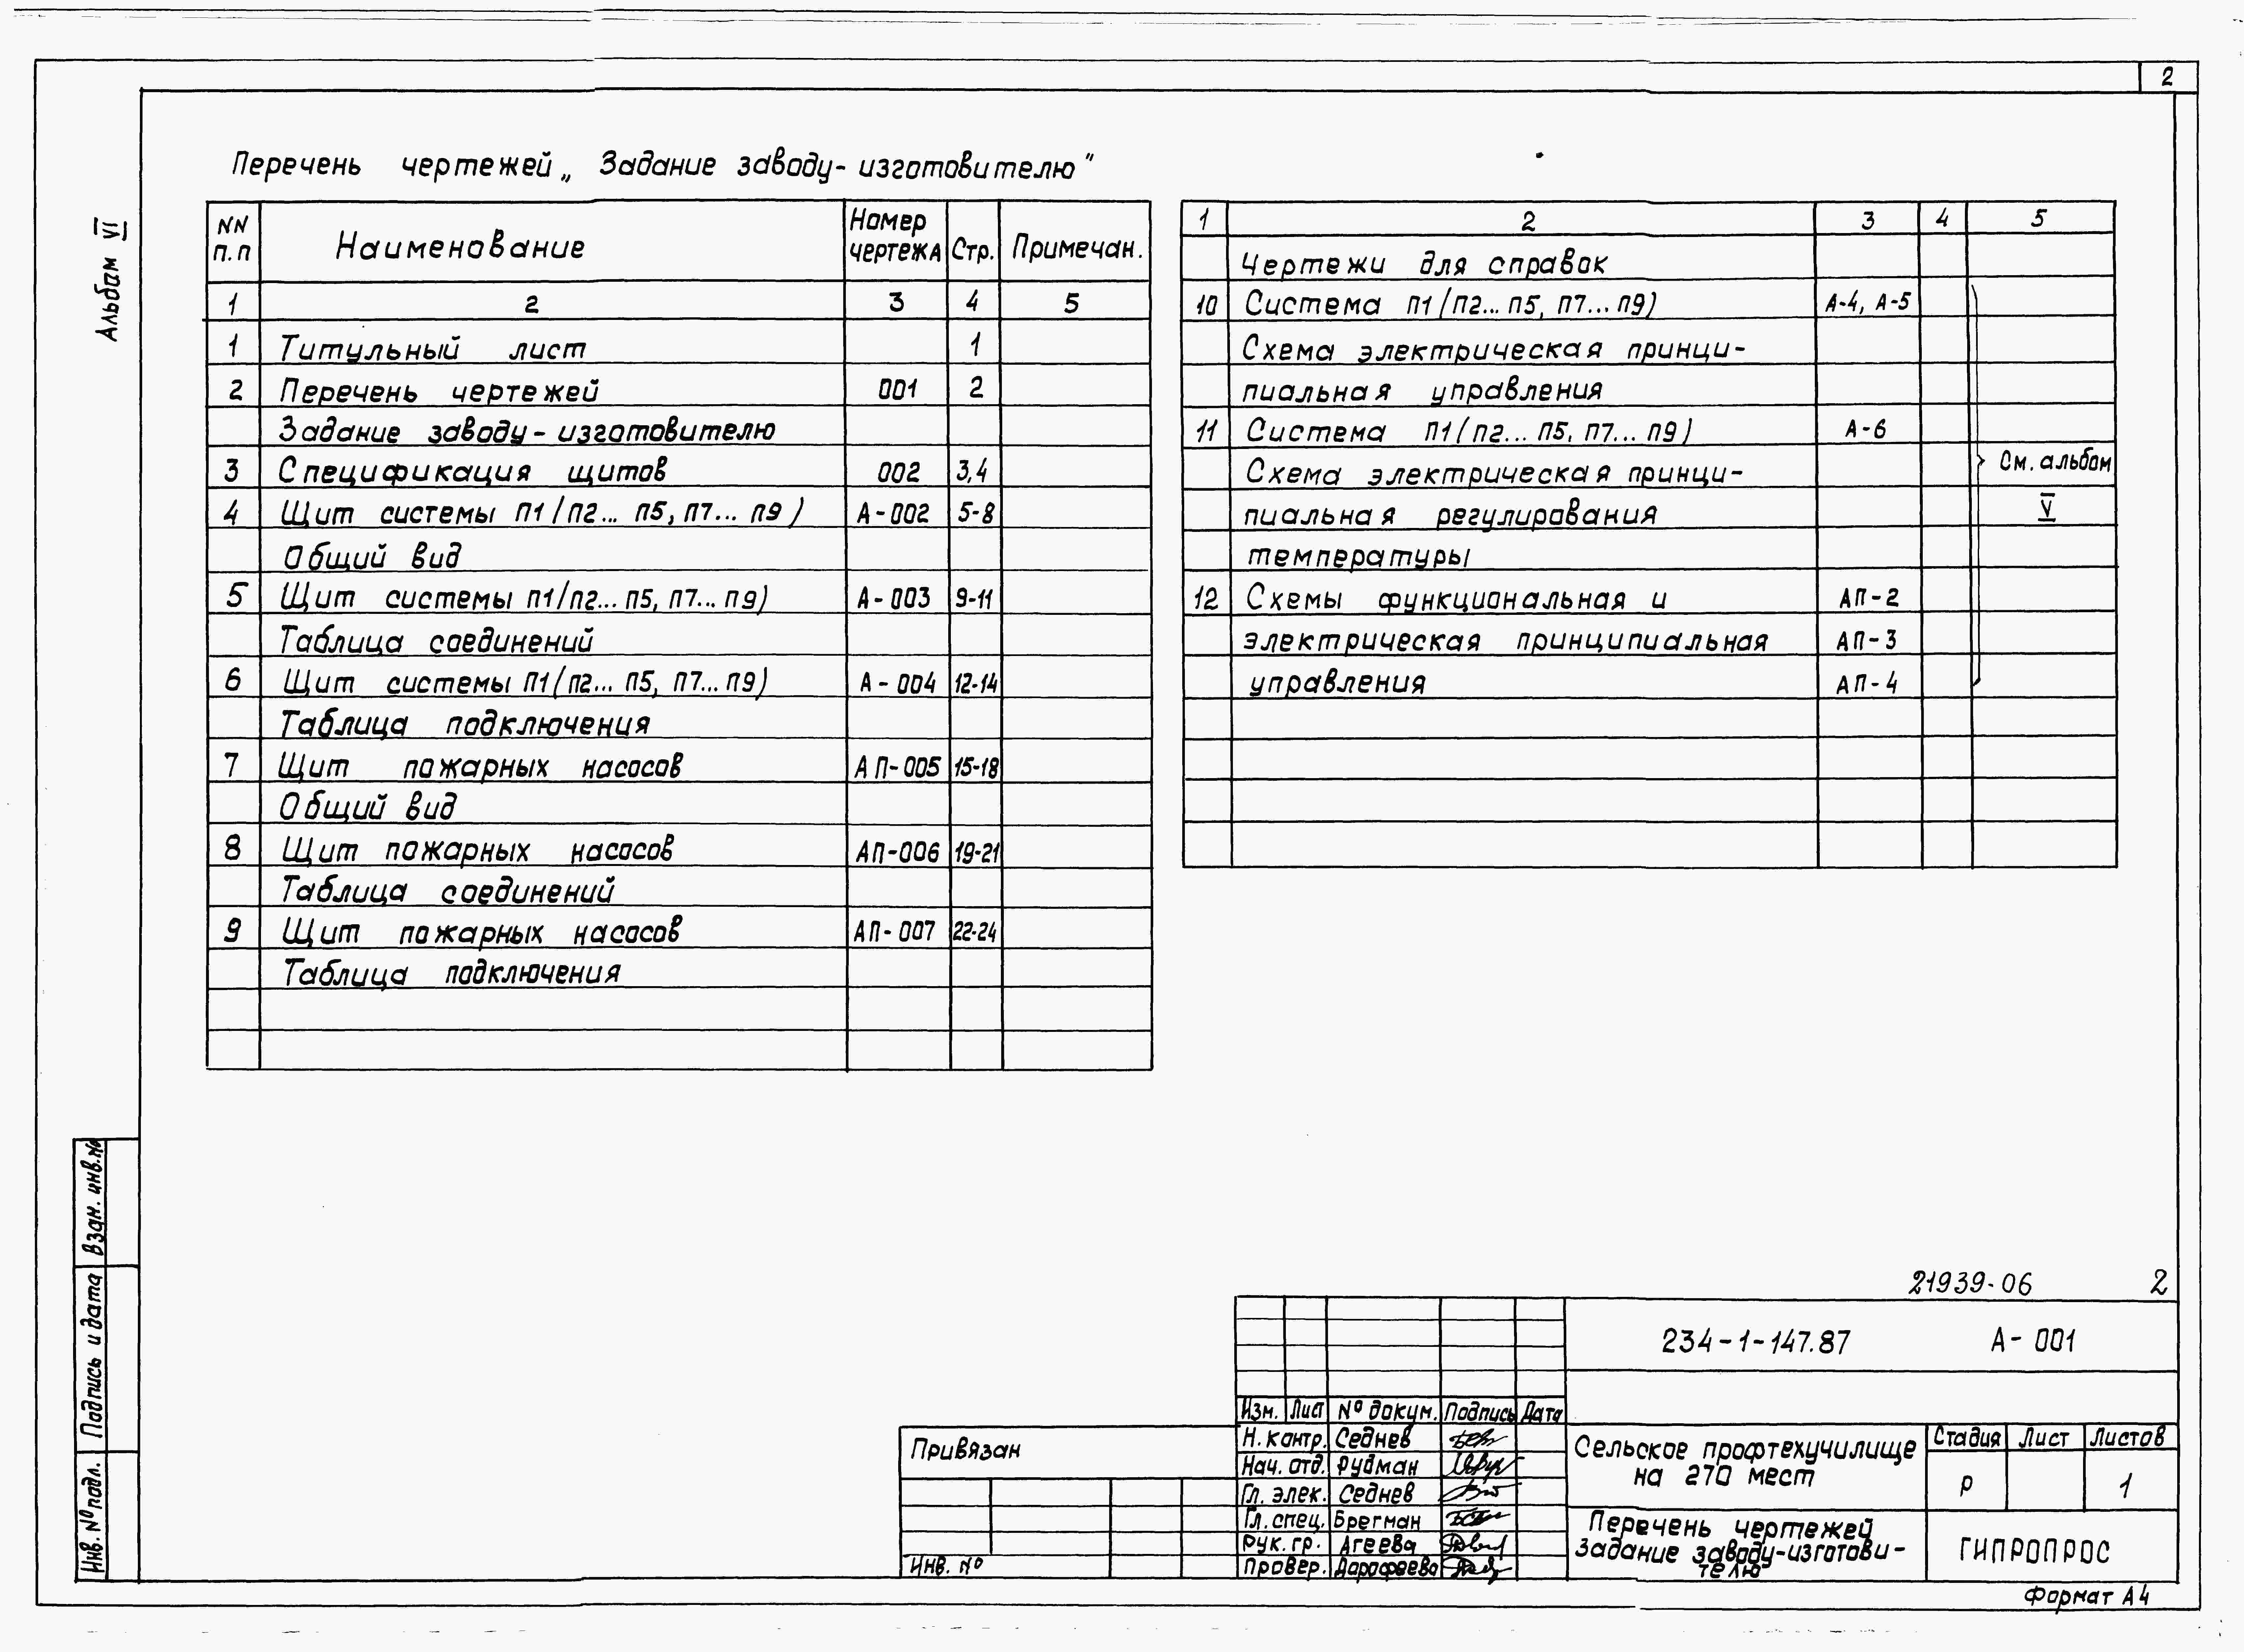 2
Альбом VI
Перечень чертежей „Задание заводу-изготовителю"
NN п.п Наименование Номер чертежа Стр. Примечан.
1 2 3 4 5
1 Титульный лист 1
2 Перечень чертежей 001 2
Задание заводу-изготовителю
3 Спецификация щитов 002 3,4
4 Щит системы П1/П2... П5, П7... П9) А-002 5-8
Общий вид
5 Щит системы П1/П2... П5, П7... П9) А-003 9-11
Таблица соединений
6 Щит системы П1(П2... П5, П7... П9) А-004 12-14
Таблица подключения
7 Щит пожарных насосов АП-005 15-18
Общий вид
8 Щит пожарных насосов АП-006 19-21
Таблица соединений
9 Щит пожарных насосов АП-007 22-24
Таблица подключения
1 2 3 4 5
Чертежи для справок
10 Система П1(П2... П5, П7... П9) А-4, А-5
Схема электрическая принци-
пиальная управления
11 Система П1(П2... П5, П7... П9) А-6
Схема электрическая принци-
См. альбом
пиальная регулирования V
температуры
12 Схемы функциональная и АП-2
электрическая принципиальная АП-3
управления АП-4
Взан. инв.№
Подпись и дата
Инв. № подл.
21939-06 2
234-1-147.87 А-001
Изм. Лист № докум. Подпись Дата
Привязан
Инв. №
Н. контр. Седнев
Нач. отд. Рудман
Гл. элек. Седнев
Гл. спец. Брегман
Рук. гр. Агеева
Провер. Дорофеева
Сельское профтехучилище
на 270 мест
Стадия Лист Листов
Р 1
Перечень чертежей
Задание заводу-изготови-
телю
ГИПРОПРОС
Формат А4